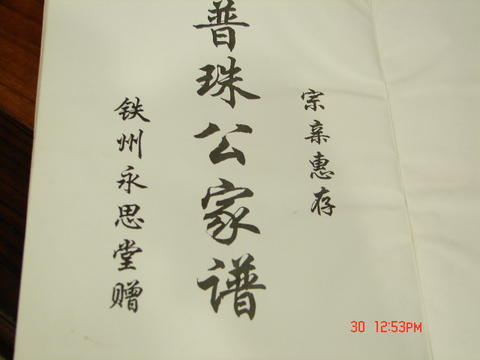 宗亲惠存
普珠公家谱
铁州永思堂赠
30 12:53PM